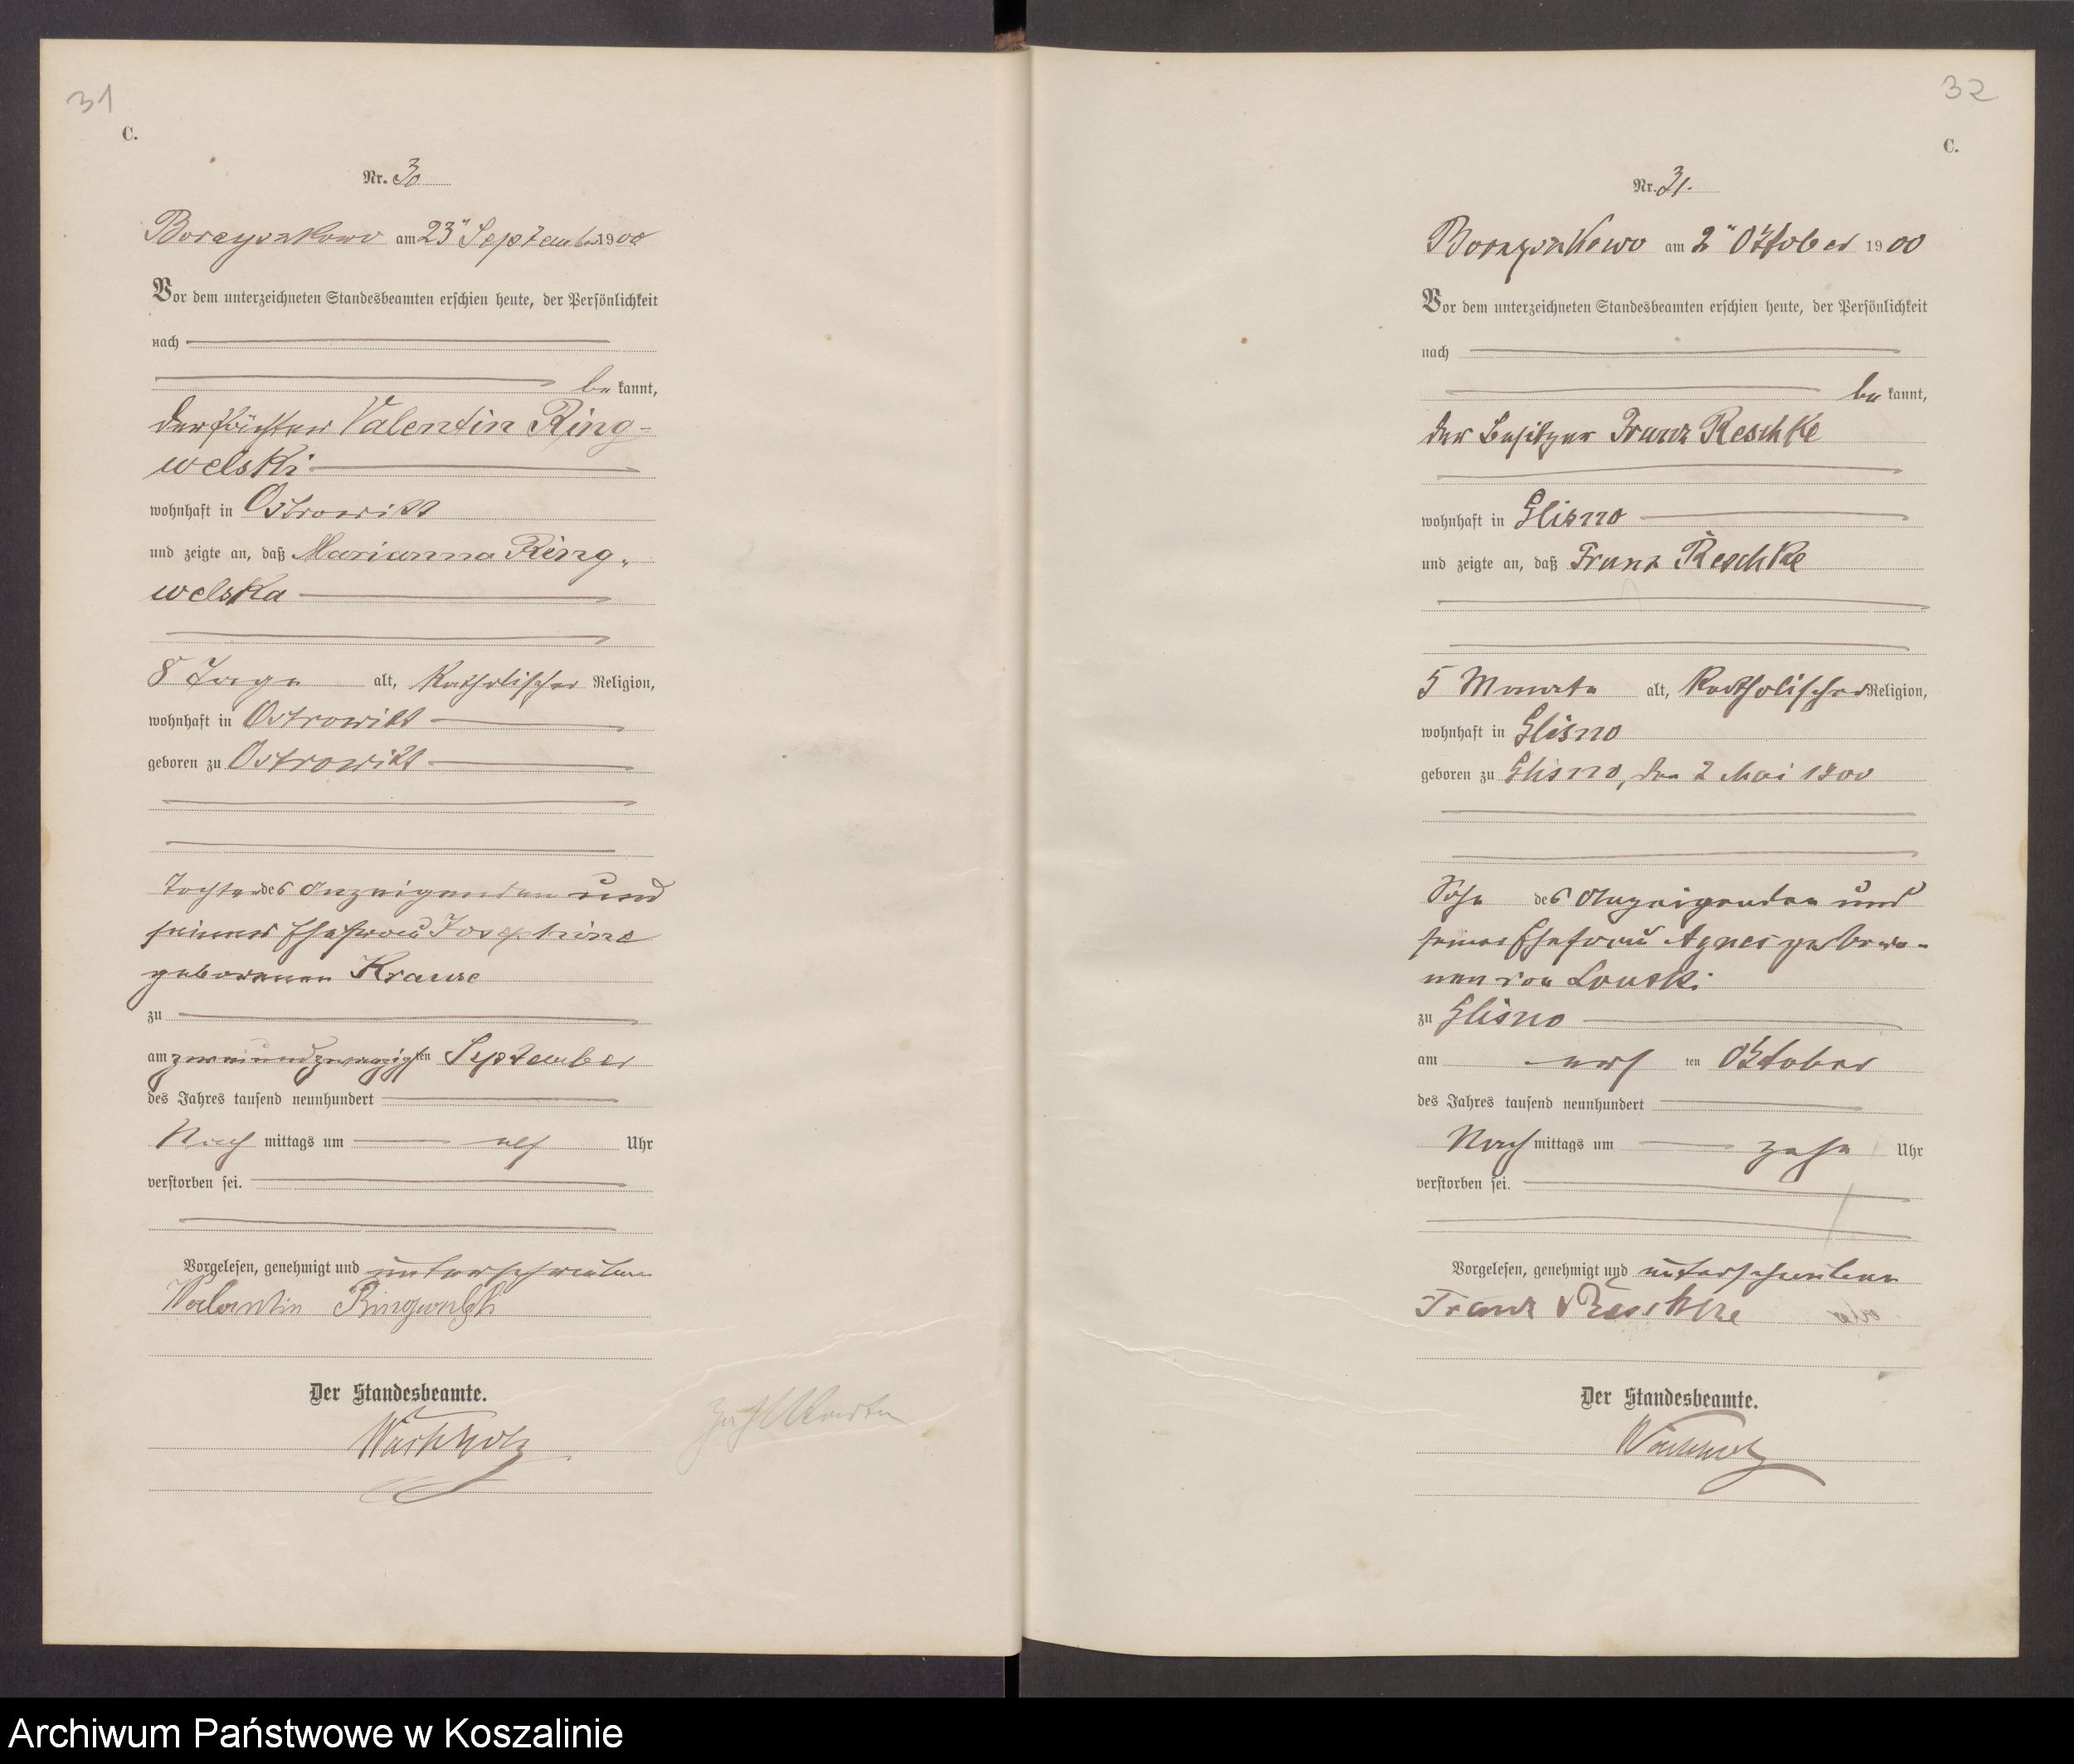 31
C.
Nr. 30
Borzyszkowo am 23" September 1900
Vor dem unterzeichneten Standesbeamten erschien heute, der Persönlichkeit
nach
be kannt,
der Pächter Valentin Ring-
welski
wohnhaft in Ostrowitt
und zeigte an, daß Marianna Ring„
welska
8 Tage alt, katholischer Religion,
wohnhaft in Ostrowitt
geboren zu Ostrowitt
Tochter des Anzeigenden und
seiner Ehefrau Josephine
geborenen Krause
zu
am zweiundzwanzigsten September
des Jahres tausend neunhundert
Nach mittags um elf Uhr
verstorben sei.
Vorgelesen, genehmigt und unterschrieben
Valentin
Der Standesbeamte.
Wachholz
32
C.
Nr. 31.
Borzyszkowo am 2" Oktober 1900
Vor dem unterzeichneten Standesbeamten erschien heute, der Persönlichkeit
nach
be kannt,
der Besitzer Franz Reschke
wohnhaft in Glisno
und zeigte an, daß Franz Reschke
5 Monate alt, katholischer Religion,
wohnhaft in Glisno
geboren zu Glisno, den 2 Mai 1900
Sohn des Anzeigenden und
seiner Ehefrau Agnes gebore-
nen von
zu Glisno
am ersten Oktober
des Jahres tausend neunhundert
Nach mittags um zehn Uhr
verstorben sei.
Vorgelesen, genehmigt und unterschrieben
Franz Reschke
Der Standesbeamte.
Wachholz
Archiwum Państwowe w Koszalinie